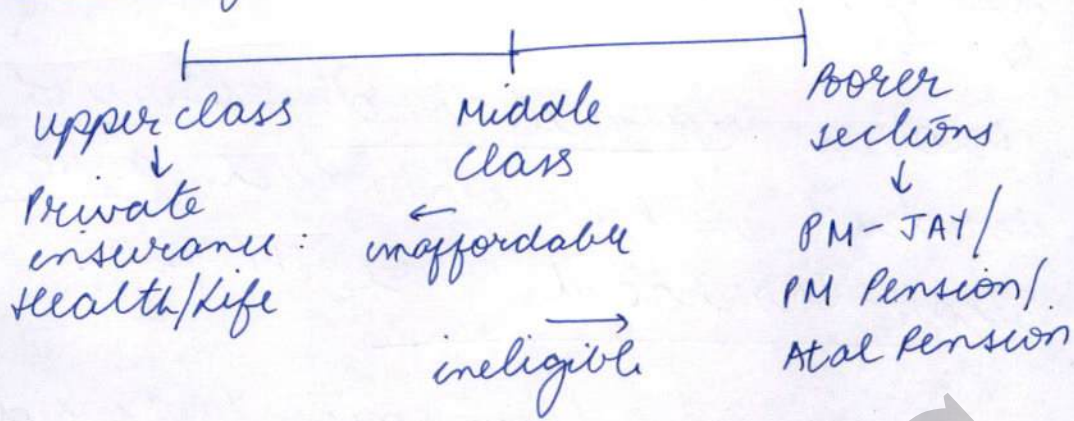 upper class
↓
Private
insurance:
Health/Life
Middle
Class
←
inaffordable
→
ineligible
Poorer
sections
↓
PM-JAY/
PM Pension/
Atal Pension